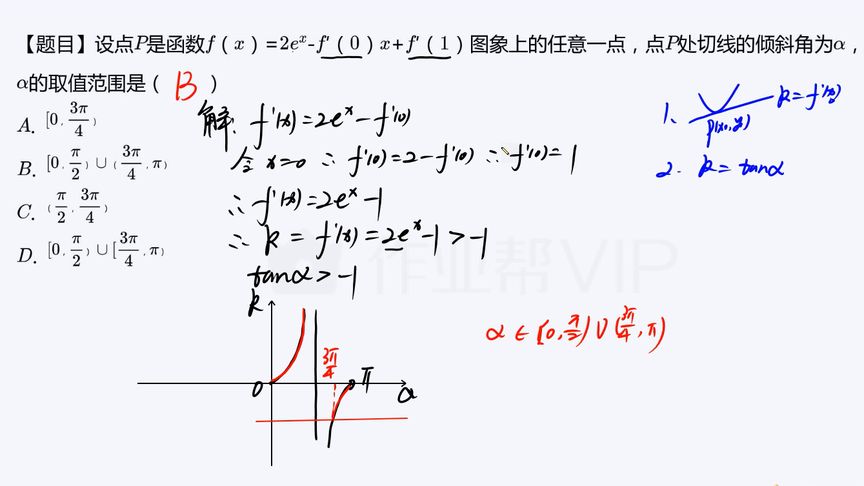 【题目】设点P是函数f(x)=2eˣ-f'(0)x+f'(1)图象上的任意一点，点P处切线的倾斜角为α，
α的取值范围是( B )
A. [0, 3π/4)
B. [0, π/2)∪(3π/4, π)
C. (π/2, 3π/4)
D. [0, π/2)∪[3π/4, π)
解: f'(x)=2eˣ-f'(0)
令x=0 ∴ f'(0)=2-f'(0) ∴ f'(0)=1
∴ f'(x)=2eˣ-1
∴ k=f'(x)=2eˣ-1>-1
tanα>-1
1. k=f'(x₀)
P(x₀,y₀)
2. k=tanα
k
3π/4
0
π
α
α∈[0,π/2)∪(3π/4,π)
作业帮VIP